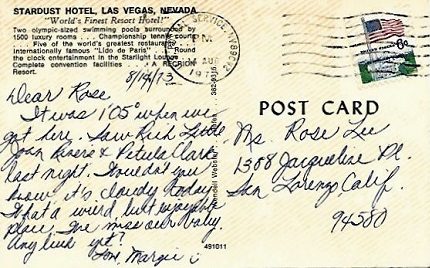 STARDUST HOTEL, LAS VEGAS, NEVADA
"World's Finest Resort Hotel!"
Two olympic-sized swimming pools surrounded by
1500 luxury rooms . . . Championship tennis courts
. . . Five of the world's greatest restaurants
internationally famous "Lido de Paris" . . . Round
the clock entertainment in the Starlight Lounge . . .
Complete convention facilities . . . A RECRION
Resort.
8/14/73
Dear Rose
It was 105° when we
got here. Saw Rich Little
Joan Rivers & Petula Clark
last night. Wouldn't you
know it's cloudy today
What a weird, but enjoyable
place. We miss our baby.
Any luck yet?
Love, Margie
491011
SERVICE, NV 89012
PM
AUG
6c
POST CARD
Ms. Rose Lee
1388 Jacqueline Pl.
San Lorenzo, Calif.
94580